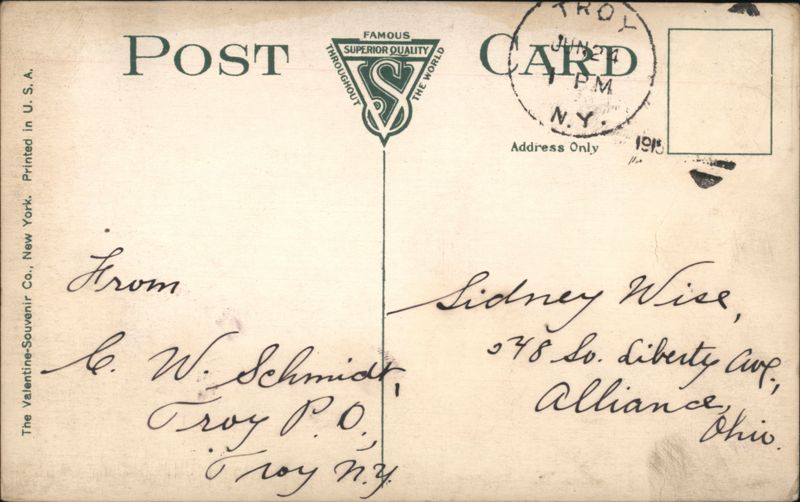 POST CARD
FAMOUS
SUPERIOR QUALITY
THROUGHOUT
THE WORLD
VS
TROY
JUN 24
1 PM
N.Y.
Address Only
The Valentine-Souvenir Co., New York. Printed in U. S. A.
From
C. W. Schmidt,
Troy P. O.,
Troy N.Y.
Sidney Wise,
548 So. Liberty Ave.,
Alliance,
Ohio.